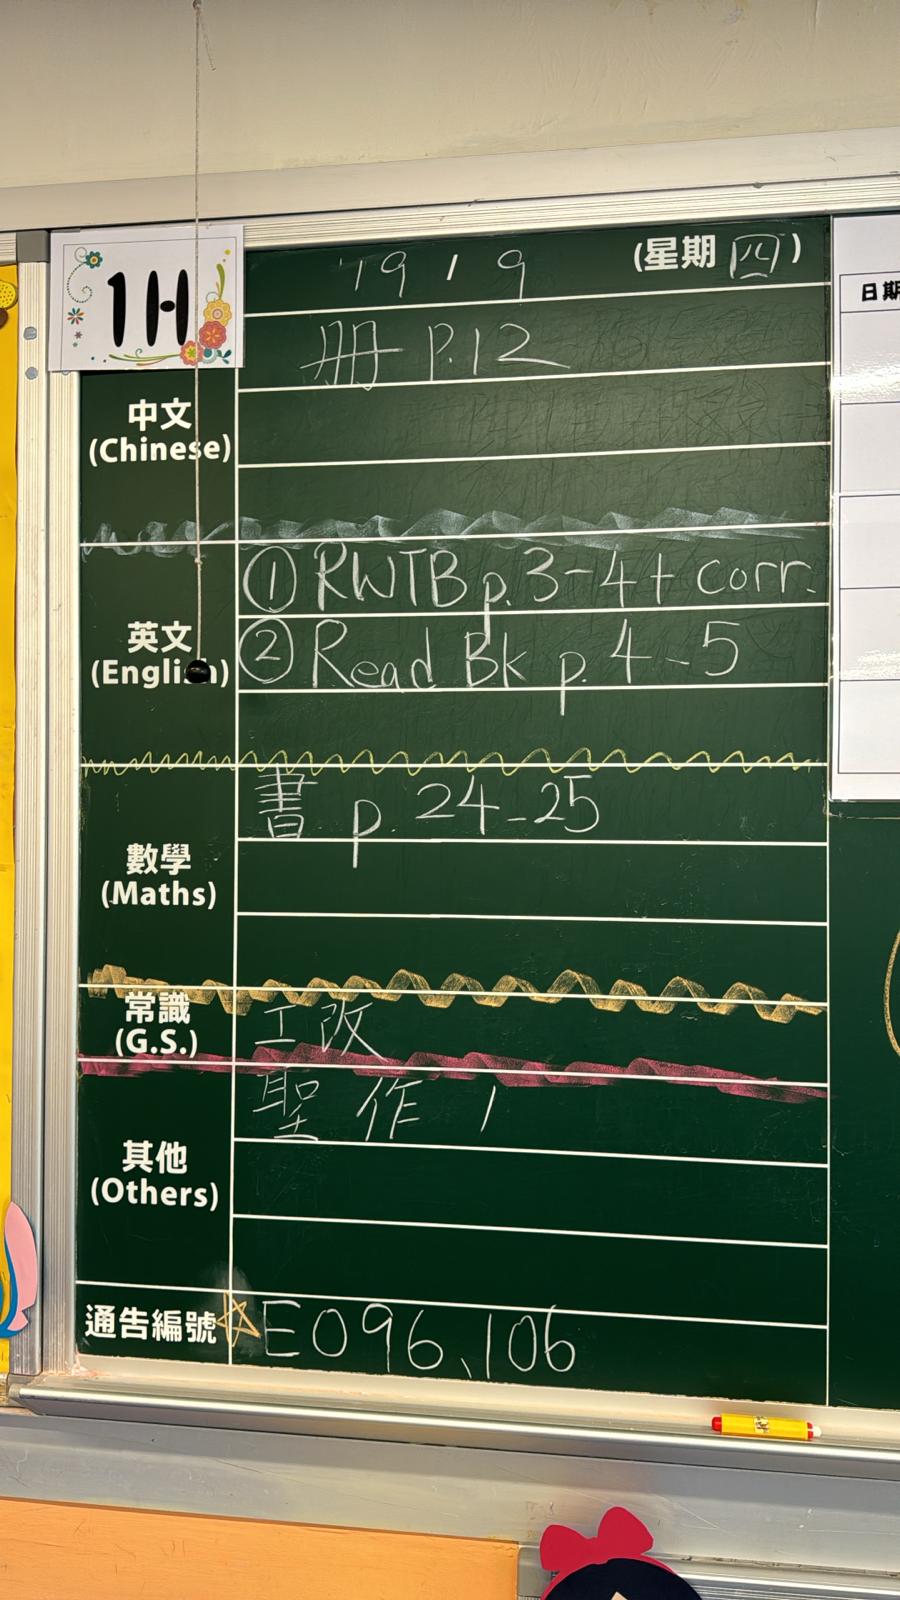 1H
19 / 9 (星期 四)
日期
冊 P.12
中文
(Chinese)
① RWTB p. 3-4 + corr.
英文
(English)
② Read Bk p. 4-5
書 p. 24-25
數學
(Maths)
常識
(G.S.)
工改
聖 作 1
其他
(Others)
通告編號 ☆ E096、106